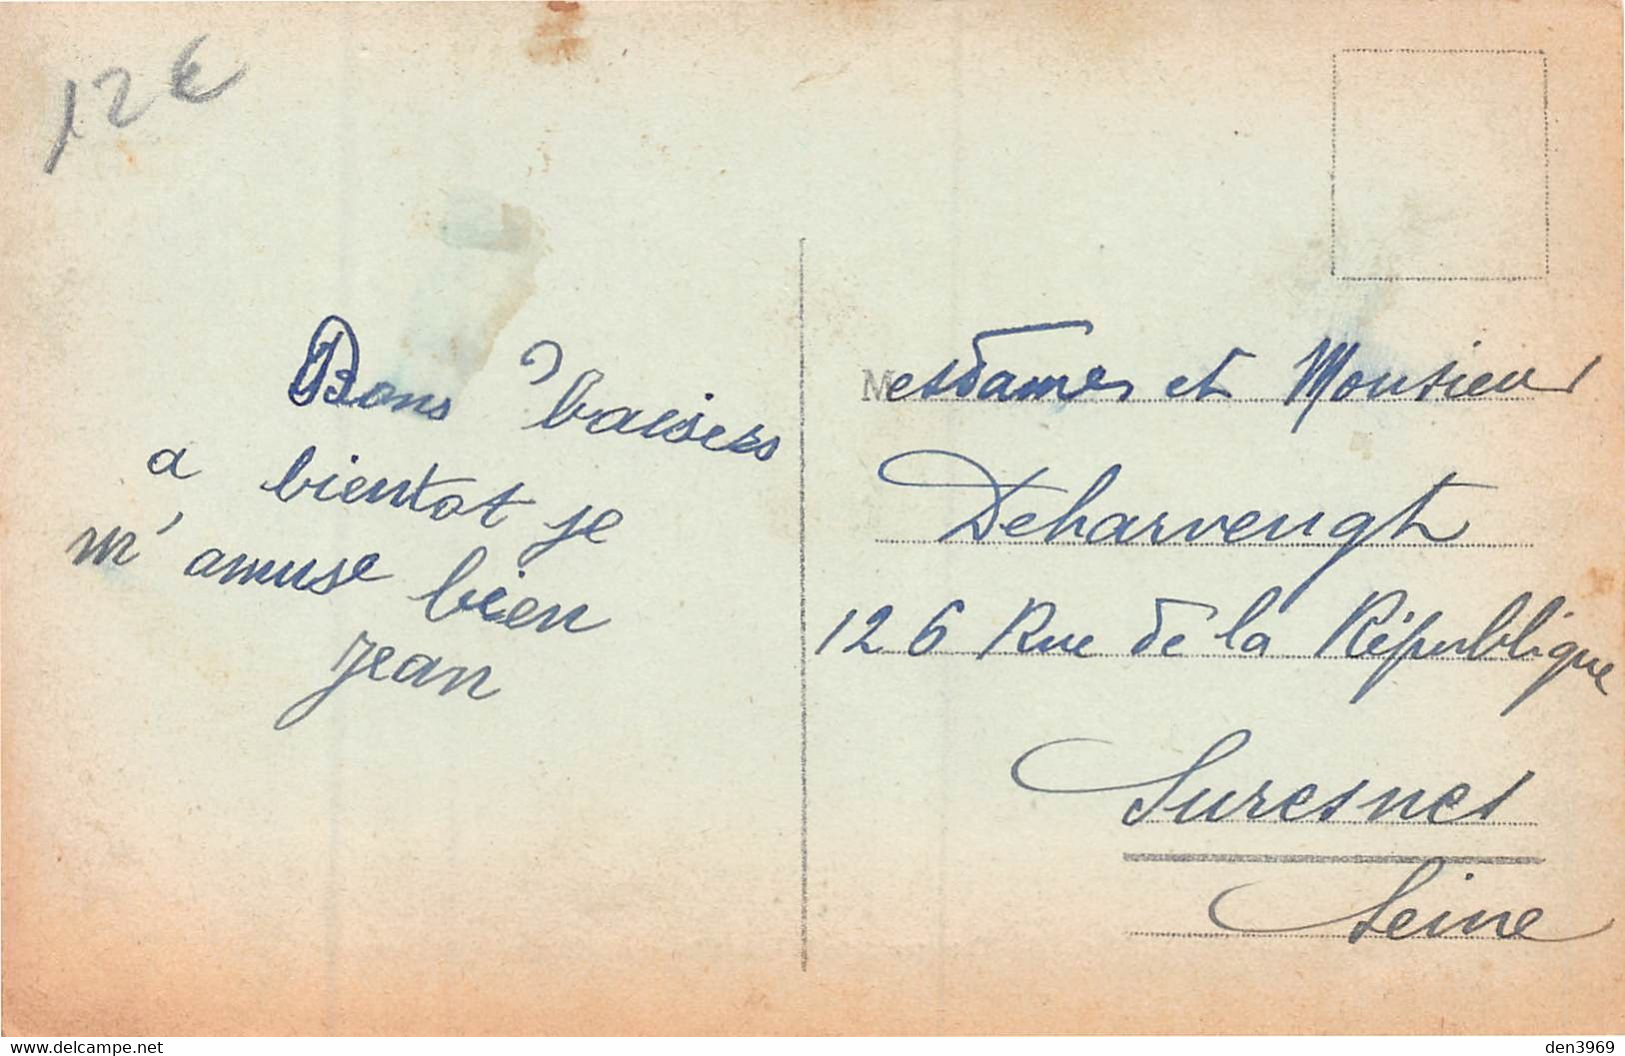 12€
Bons baisers
a bientot je
m'amuse bien
Jean
Mesdames et Monsieur
Deharvengt
126 Rue de la République
Suresnes
Seine
www.delcampe.net
den3969